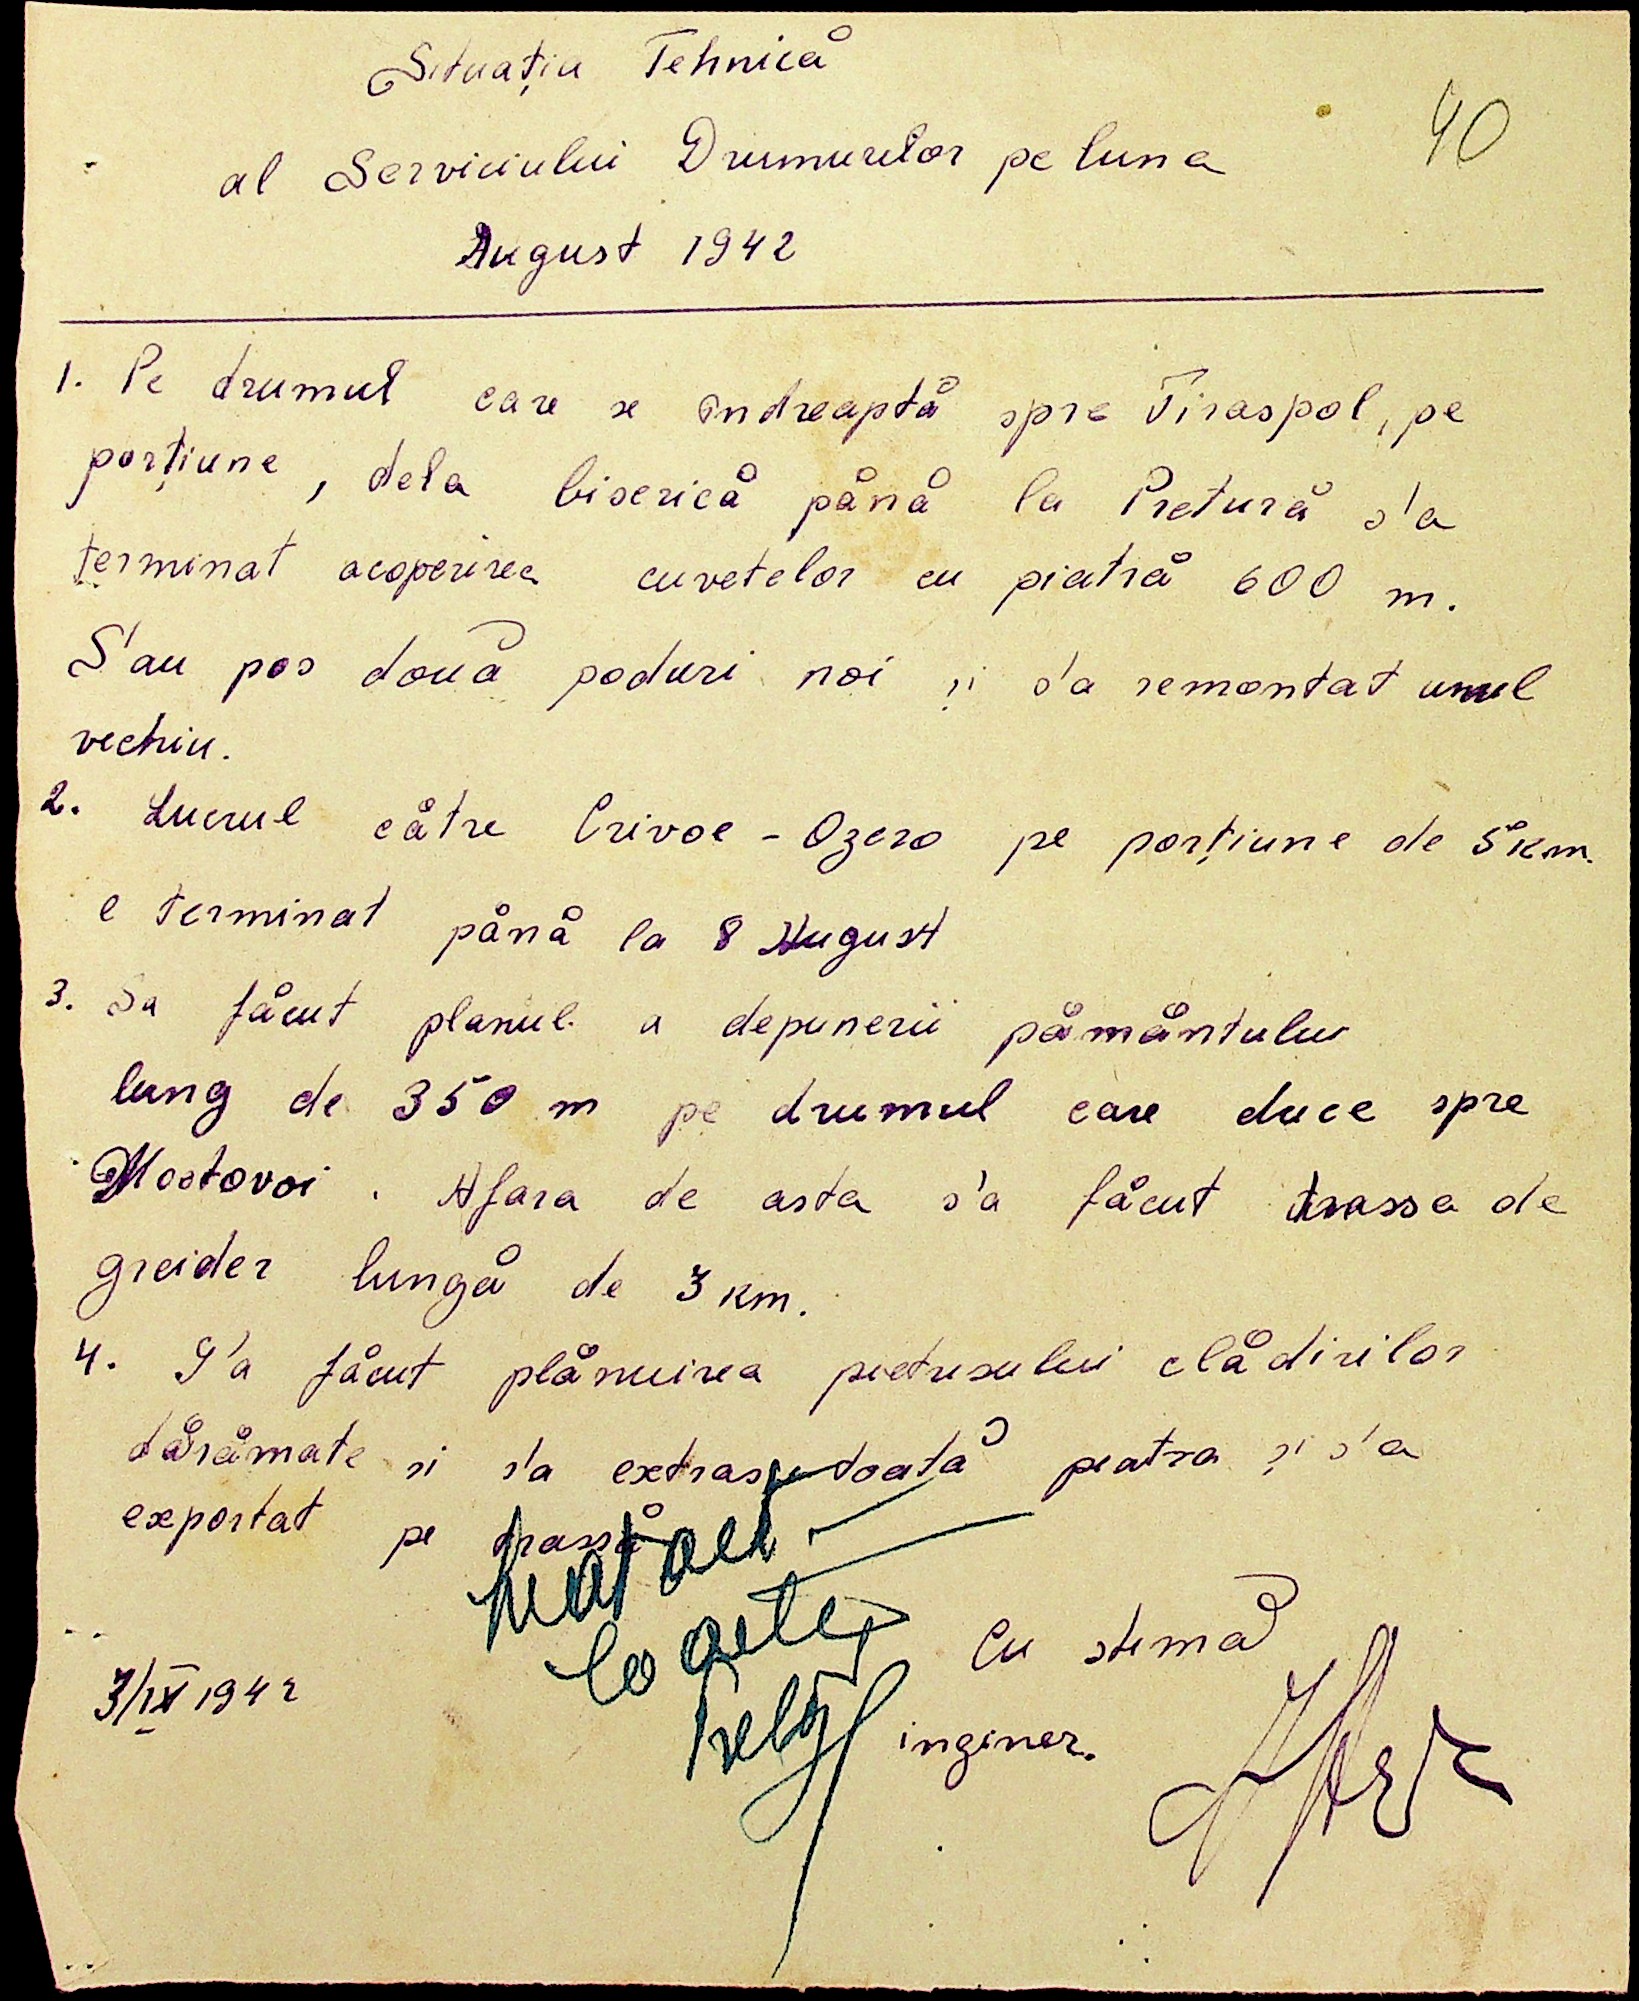 Situația Tehnică
40
al Serviciului Drumurilor pe luna
August 1942
1. Pe drumul care se îndreaptă spre Tiraspol, pe
porțiune, dela biserică până la Pretură s'a
terminat acoperirea cuvetelor cu piatră 600 m.
S'au pos două poduri noi și s'a remontat unul
vechiu.
2. Lucrul către Crivoe - Ozero pe porțiune de 5 km.
e terminat până la 8 August
3. Sa făcut planul a depunerii pământului
lung de 350 m pe drumul care duce spre
Mostovoi. Afara de asta s'a făcut trassa de
greider lungă de 3 km.
4. S'a făcut plănuirea pietrisului clădirilor
dărămate si s'a extras toată peatra și s'a
exportat pe trassă
La acte
Cu stimă
3/IX 1942
inginer.